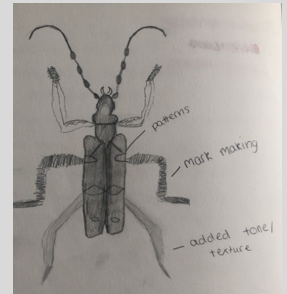 patterns
mark making
added tone/
texture